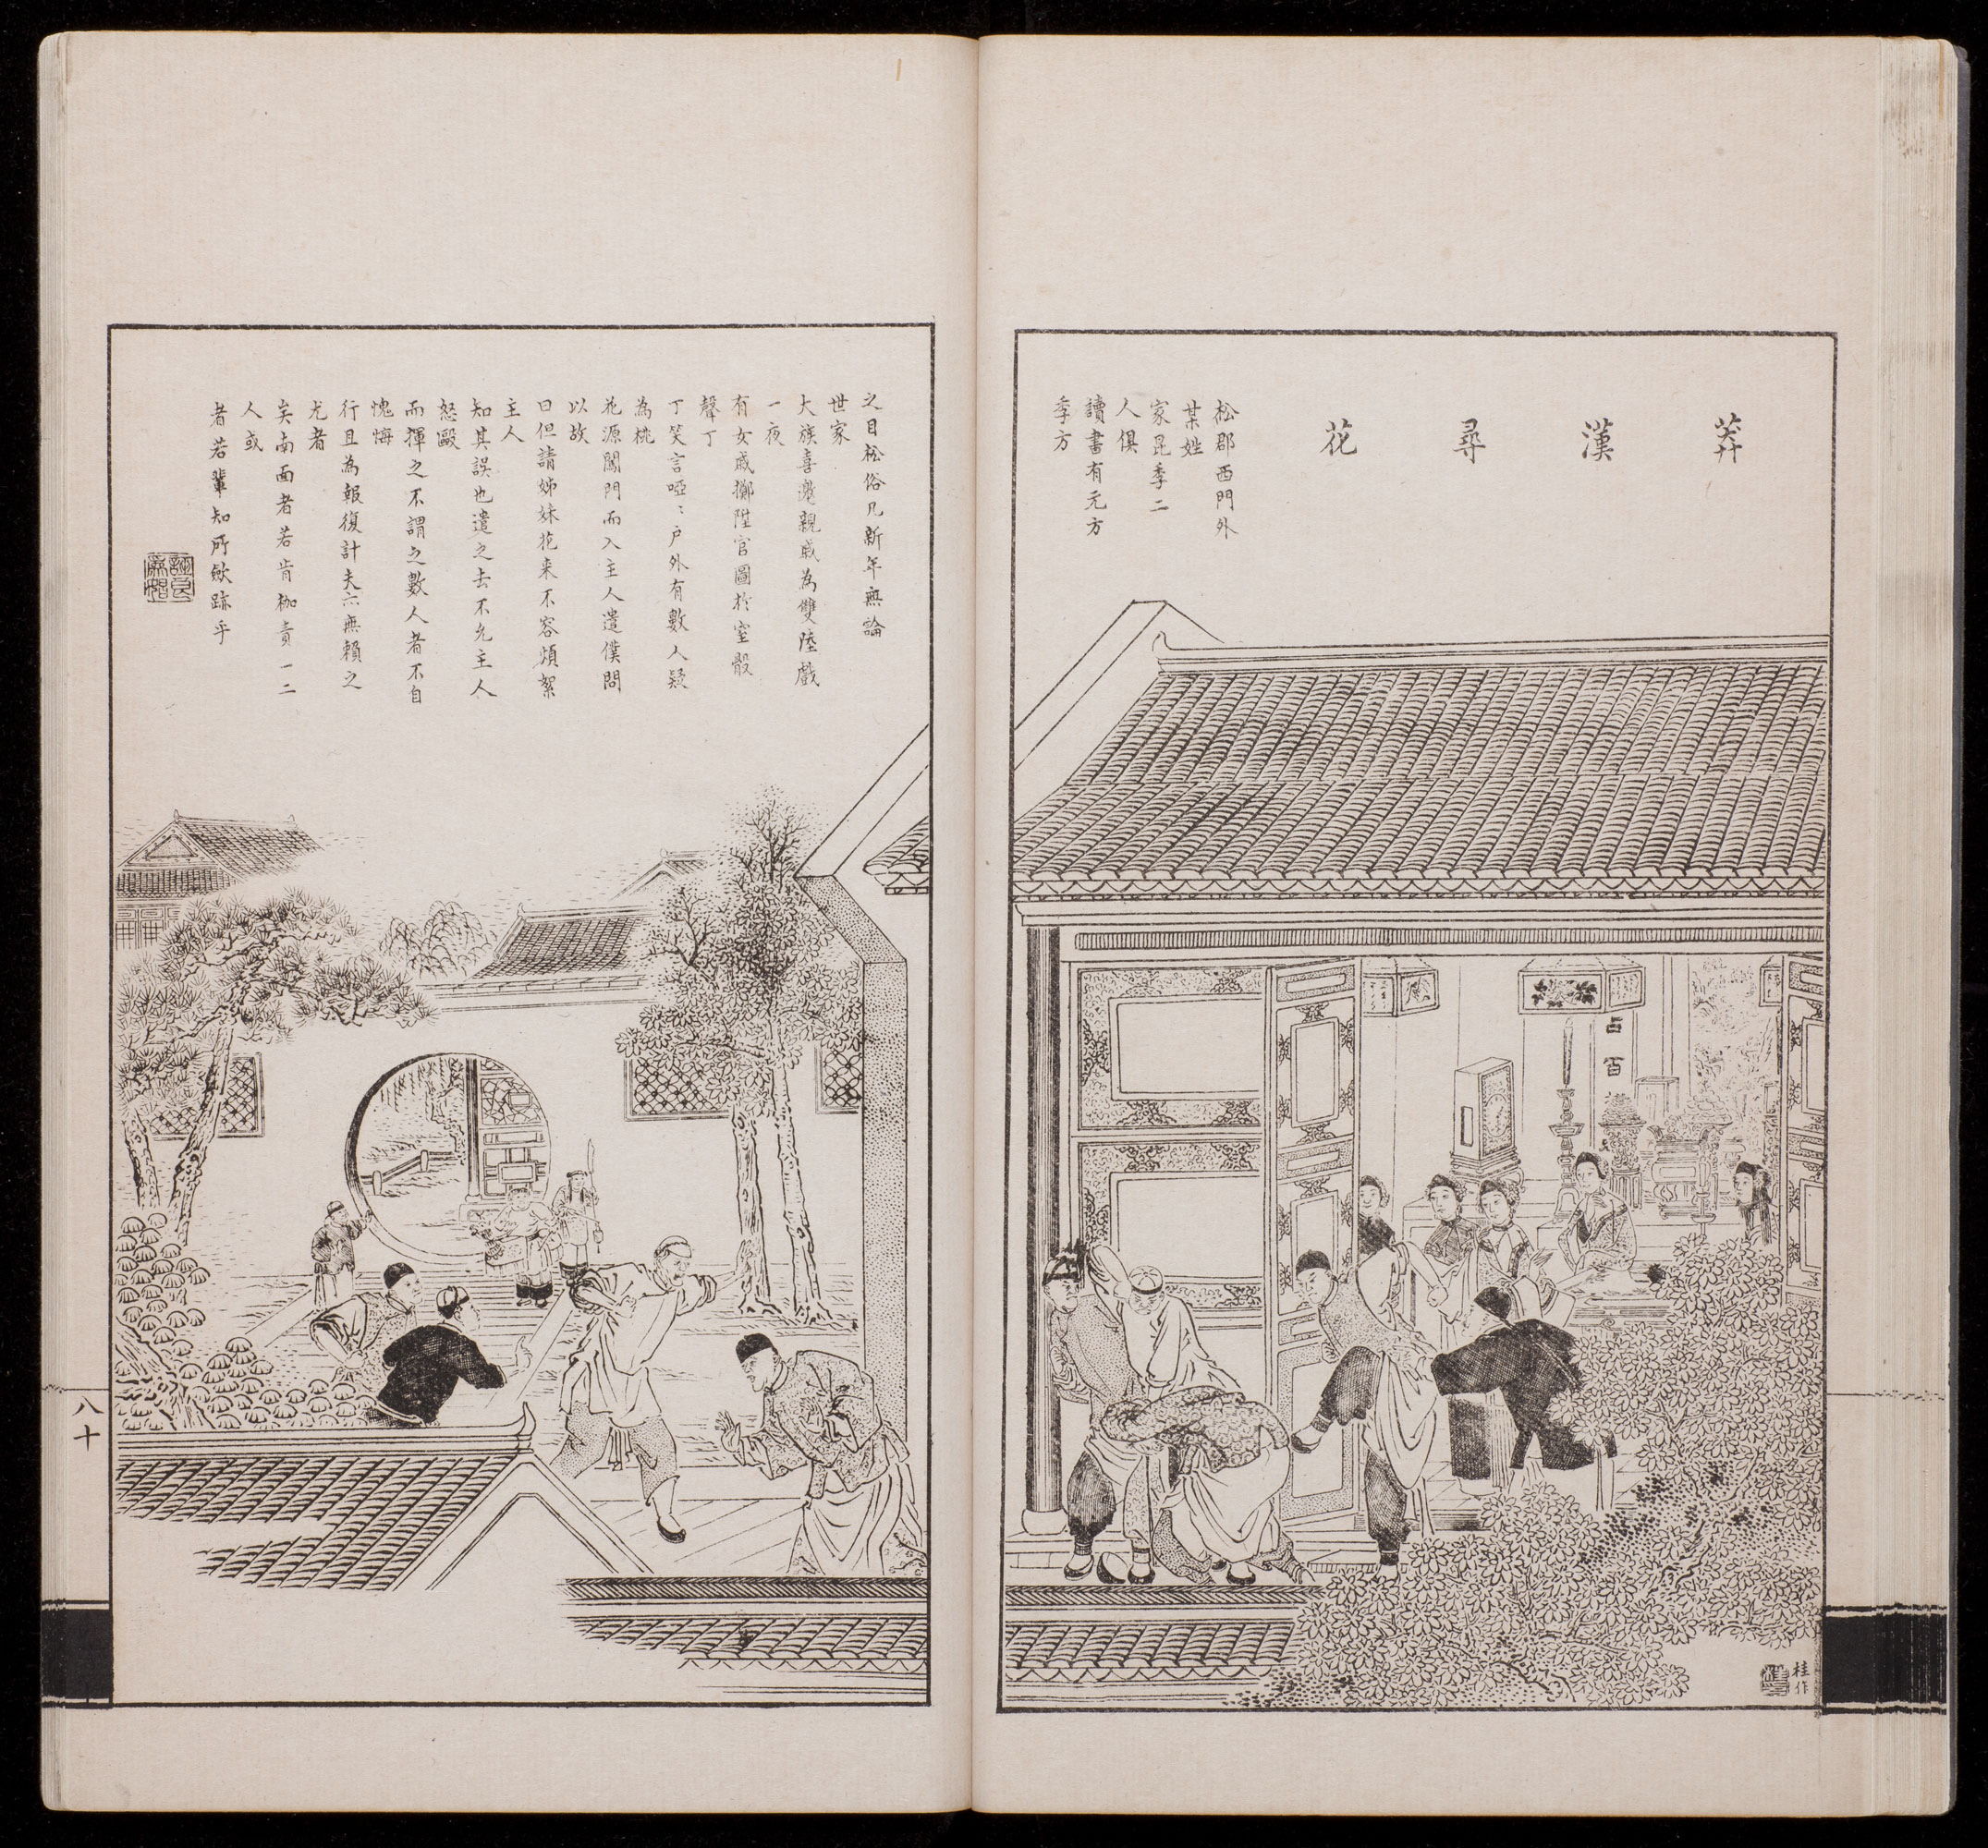 莽漢尋花
松郡西門外
某姓
家昆季二
人俱
讀書有元方
季方
之目松俗凡新年無論
世家
大族喜邀親戚為雙陸戲
一夜
有女戚擲陞官圖於室骰
聲丁
丁笑言啞〻戶外有數人疑
為桃
花源闖門而入主人遣僕問
以故
曰但請姊妹花来不容煩絮
主人
知其誤也遣之去不允主人
怒毆
而揮之不謂之數人者不自
愧悔
行且為報復計夫亦無賴之
尤者
矣南面者若肯枷責一二
人或
者若輩知所斂跡乎
八十
百
桂作